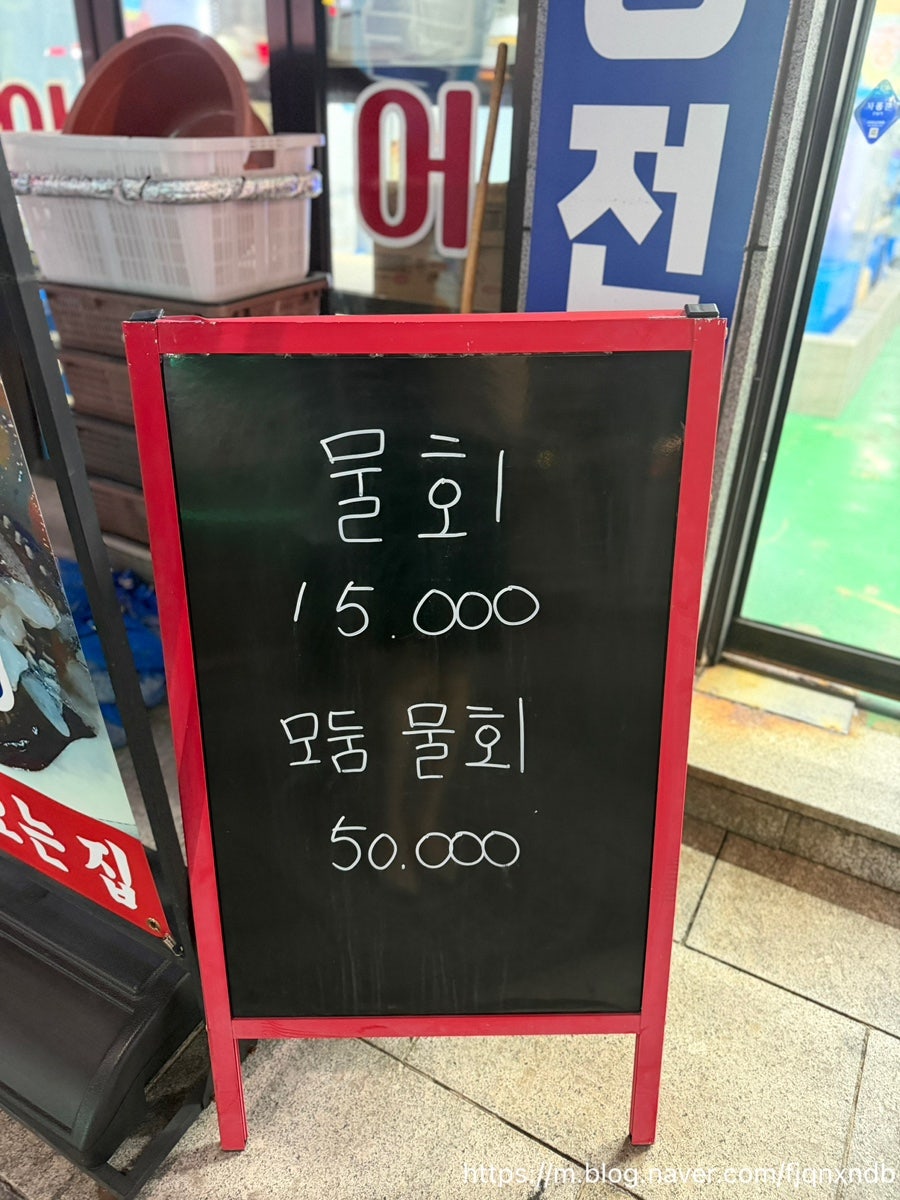 어
전
물회
15.000
모둠 물회
50.000
는 집
https://m.blog.naver.com/fjqnxndb